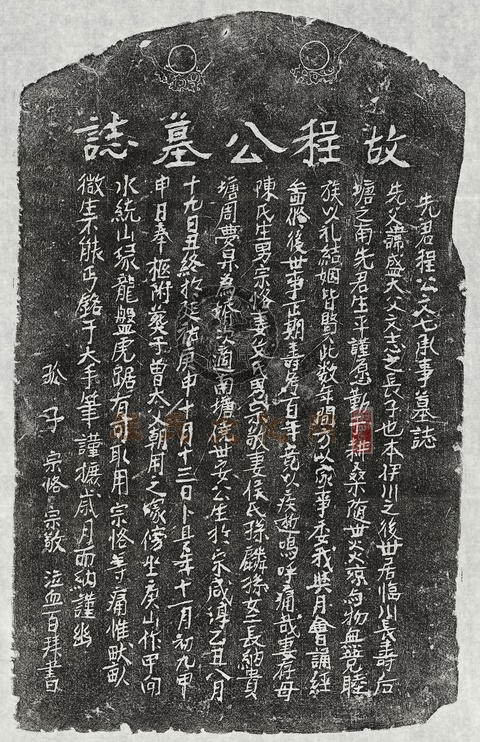 故程公墓誌
先君程公文七承事墓誌
先父諱盛大父文志之長子也本伊川之後世居臨川長壽后
塘之南先君生平謹愿勤于耕桑隨世大父添與物無競睦
族以礼結姻皆賢比数年間方以家事委我與月會誦經
啚脩後世事正期壽考百年竟以疾逝嗚呼痛哉妻存母
陳氏生男宗恪妻艾氏男宗敬妻侯氏孫麟孫女三長納貴
塘周夢杲為 次適南塘 世安公生於宋咸淳乙丑八月
十九日丑終於延祐庚申十月十三日卜是年十一月初九甲
申日奉柩附葬于曾大父朝用之塚傍坐庚山作甲向
水統山縁龍盤虎踞有可取用宗恪等痛惟畎畝
微生不能丐銘于大手筆謹攄歲月而納諸幽
孤子宗恪宗敬泣血百拜書